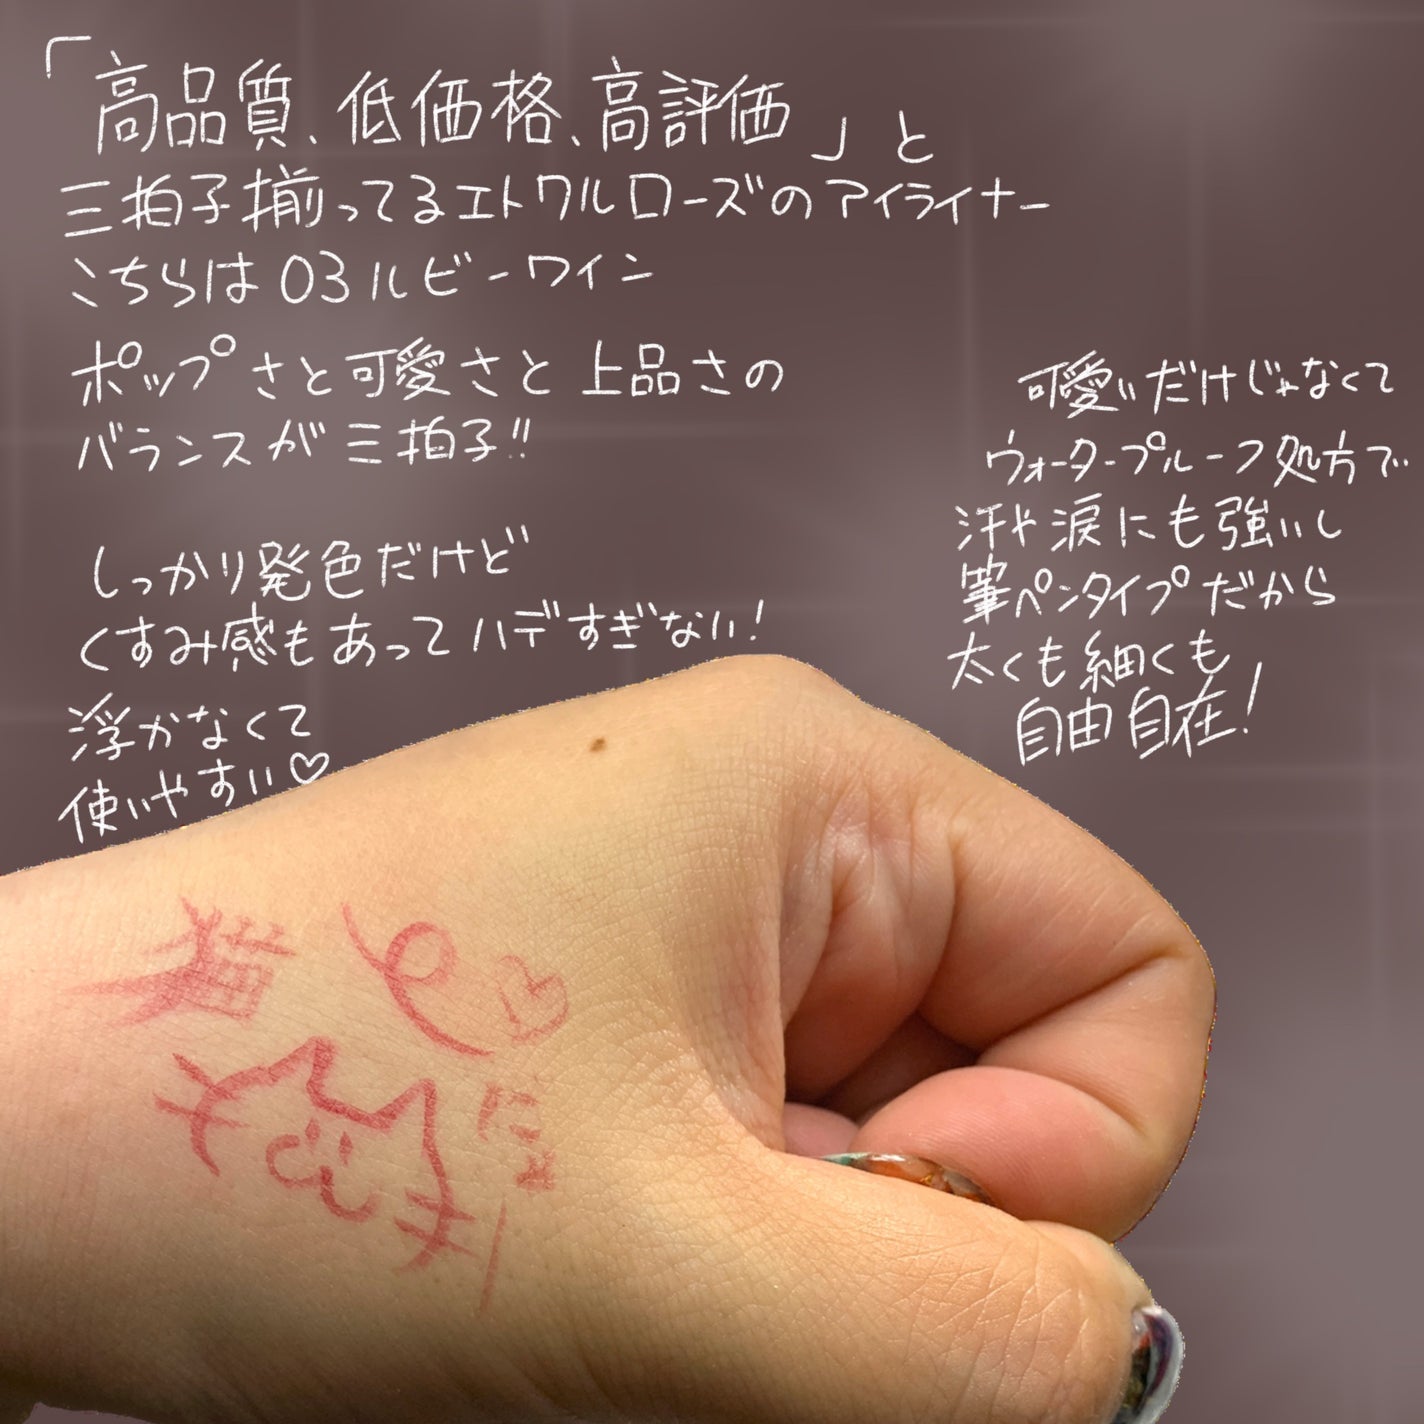 「高品質、低価格、高評価」と
三拍子揃ってるエトワルローズのアイライナー
こちらは03ルビーワイン
ポップさと可愛さと上品さの
バランスが三拍子!!
しっかり発色だけど
くすみ感もあってハデすぎない!
浮かなくて
使いやすい♡
可愛いだけじゃなくて
ウォータープルーフ処方で
汗や涙にも強いし
筆ペンタイプだから
太くも細くも
自由自在!
猫
♡